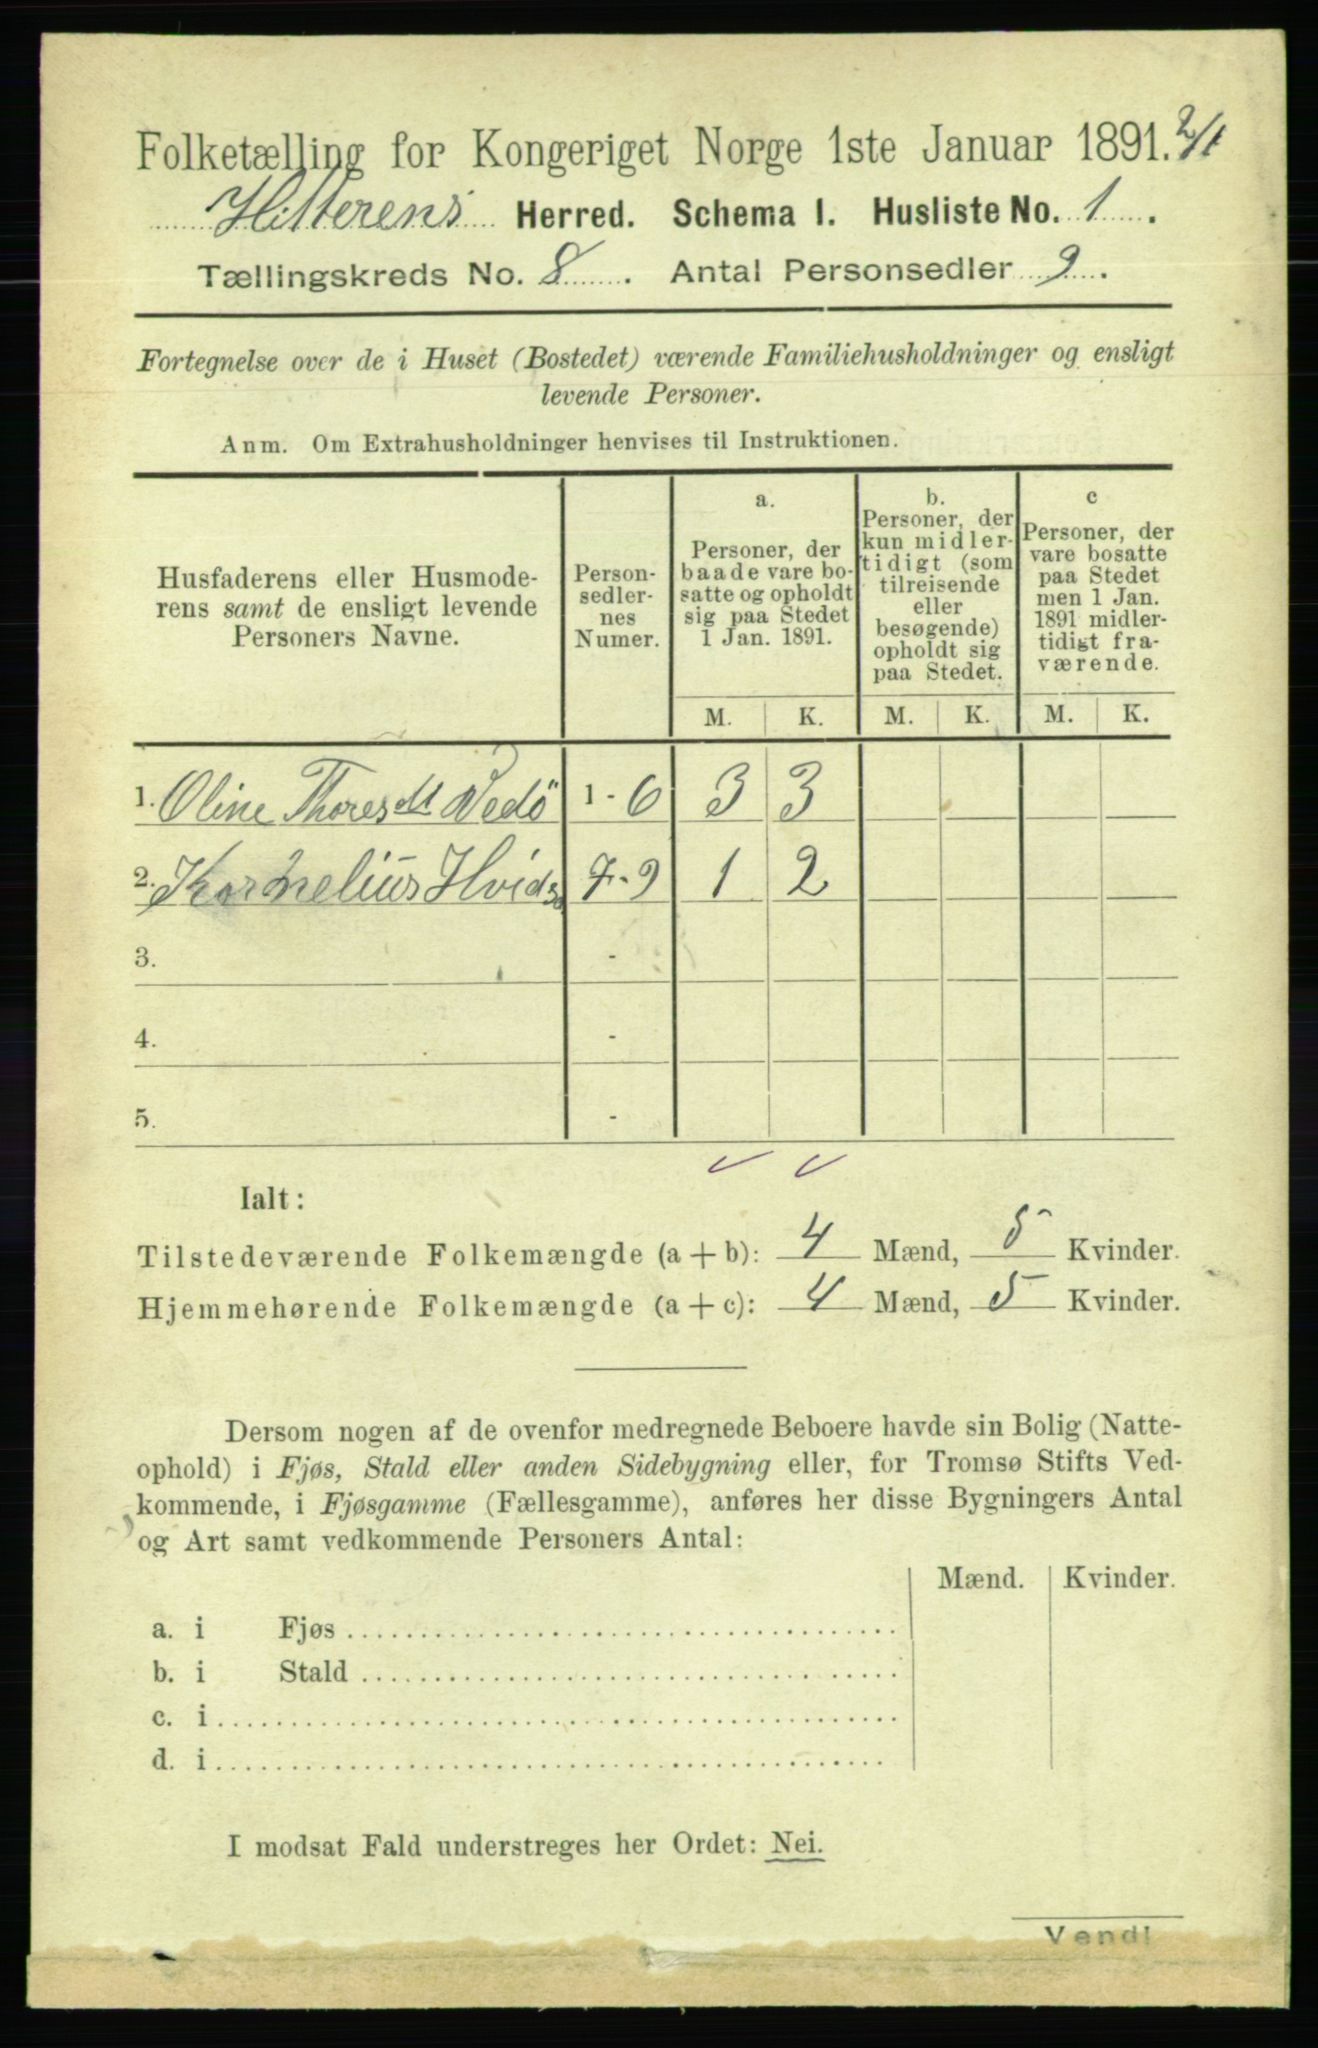 Folketælling for Kongeriget Norge 1ste Januar 1891. 2/1
Hitterens Herred. Schema I. Husliste No. 1.
Tællingskreds No. 8. Antal Personsedler 9.
Fortegnelse over de i Huset (Bostedet) værende Familiehusholdninger og ensligt
levende Personer.
Anm. Om Extrahusholdninger henvises til Instruktionen.
Husfaderens eller Husmode-
rens samt de ensligt levende
Personers Navne.
Person-
sedler-
nes
Numer.
a.
Personer, der
baade vare bo-
satte og opholdt
sig paa Stedet
1 Jan. 1891.
b.
Personer, der
kun midler-
tidigt (som
tilreisende
eller
besøgende)
opholdt sig
paa Stedet.
c
Personer, der
vare bosatte
paa Stedet
men 1 Jan.
1891 midler-
tidigt fra-
værende.
M. K. M. K. M. K.
1. Oline Thoresdt Vedö 1 - 6 3 3
2. Kornelius Hvids 7 - 9 1 2
3. -
4. -
5. -
Ialt:
Tilstedeværende Folkemængde (a + b): 4 Mænd, 5 Kvinder.
Hjemmehørende Folkemængde (a + c): 4 Mænd, 5 Kvinder.
Dersom nogen af de ovenfor medregnede Beboere havde sin Bolig (Natte-
ophold) i Fjøs, Stald eller anden Sidebygning eller, for Tromsø Stifts Ved-
kommende, i Fjøsgamme (Fællesgamme), anføres her disse Bygningers Antal
og Art samt vedkommende Personers Antal:
Mænd. Kvinder.
a. i Fjøs
b. i Stald
c. i
d. i
I modsat Fald understreges her Ordet: Nei.
Vend!